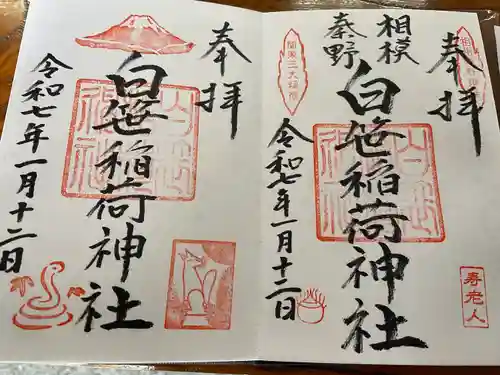 奉拝
相模
秦野
関東三大稲荷
白笹稲荷神社
令和七年一月十二日
寿老人
奉拝
白笹稲荷神社
令和七年一月十二日